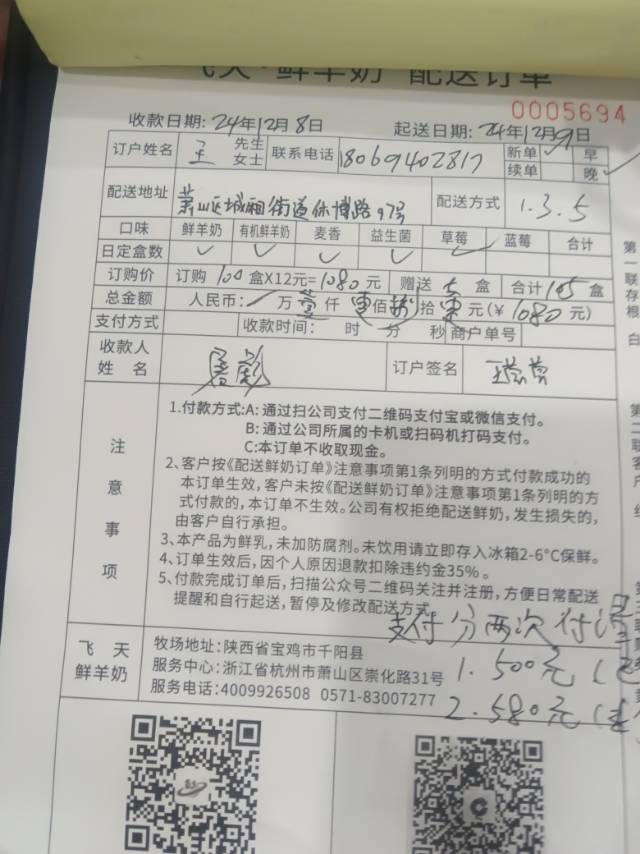 飞天·鲜羊奶 配送订单
0005694
收款日期: 24年12月8日 起送日期: 24年12月9日
订户姓名 王 先生 女士 联系电话 18069402817 新单 ✓ 早
续单 晚 ✓
配送地址 萧山区城厢街道体博路97号 配送方式 1.3.5
口味 鲜羊奶 有机鲜羊奶 麦香 益生菌 草莓 蓝莓 合计
日定盒数 ✓ ✓ ✓ ✓ ✓
订购价 订购 100 盒X12元=1080元 赠送 5 盒 合计105盒
总金额 人民币: 万 壹仟 零佰 捌拾 零元(¥1080元)
支付方式 收款时间: 时 分 秒 商户单号
收款人
姓 名 订户签名
注意事项
1.付款方式:A:通过扫公司支付二维码支付宝或微信支付。
B:通过公司所属的卡机或扫码机打码支付。
C:本订单不收取现金。
2、客户按《配送鲜奶订单》注意事项第1条列明的方式付款成功的
本订单生效,客户未按《配送鲜奶订单》注意事项第1条列明的方
式付款的,本订单不生效。公司有权拒绝配送鲜奶,发生损失的,
由客户自行承担。
3、本产品为鲜乳,未加防腐剂。未饮用请立即存入冰箱2-6°C保鲜。
4、订单生效后,因个人原因退款扣除违约金35%。
5、付款完成订单后,扫描公众号二维码关注并注册,方便日常配送
提醒和自行起送,暂停及修改配送方式。
支付分两次付清
飞 天
鲜羊奶
牧场地址:陕西省宝鸡市千阳县
服务中心:浙江省杭州市萧山区崇化路31号
服务电话:4009926508 0571-83007277
1.500元
2.580元
第
一
联
存
根
白
第
二
联
客
户